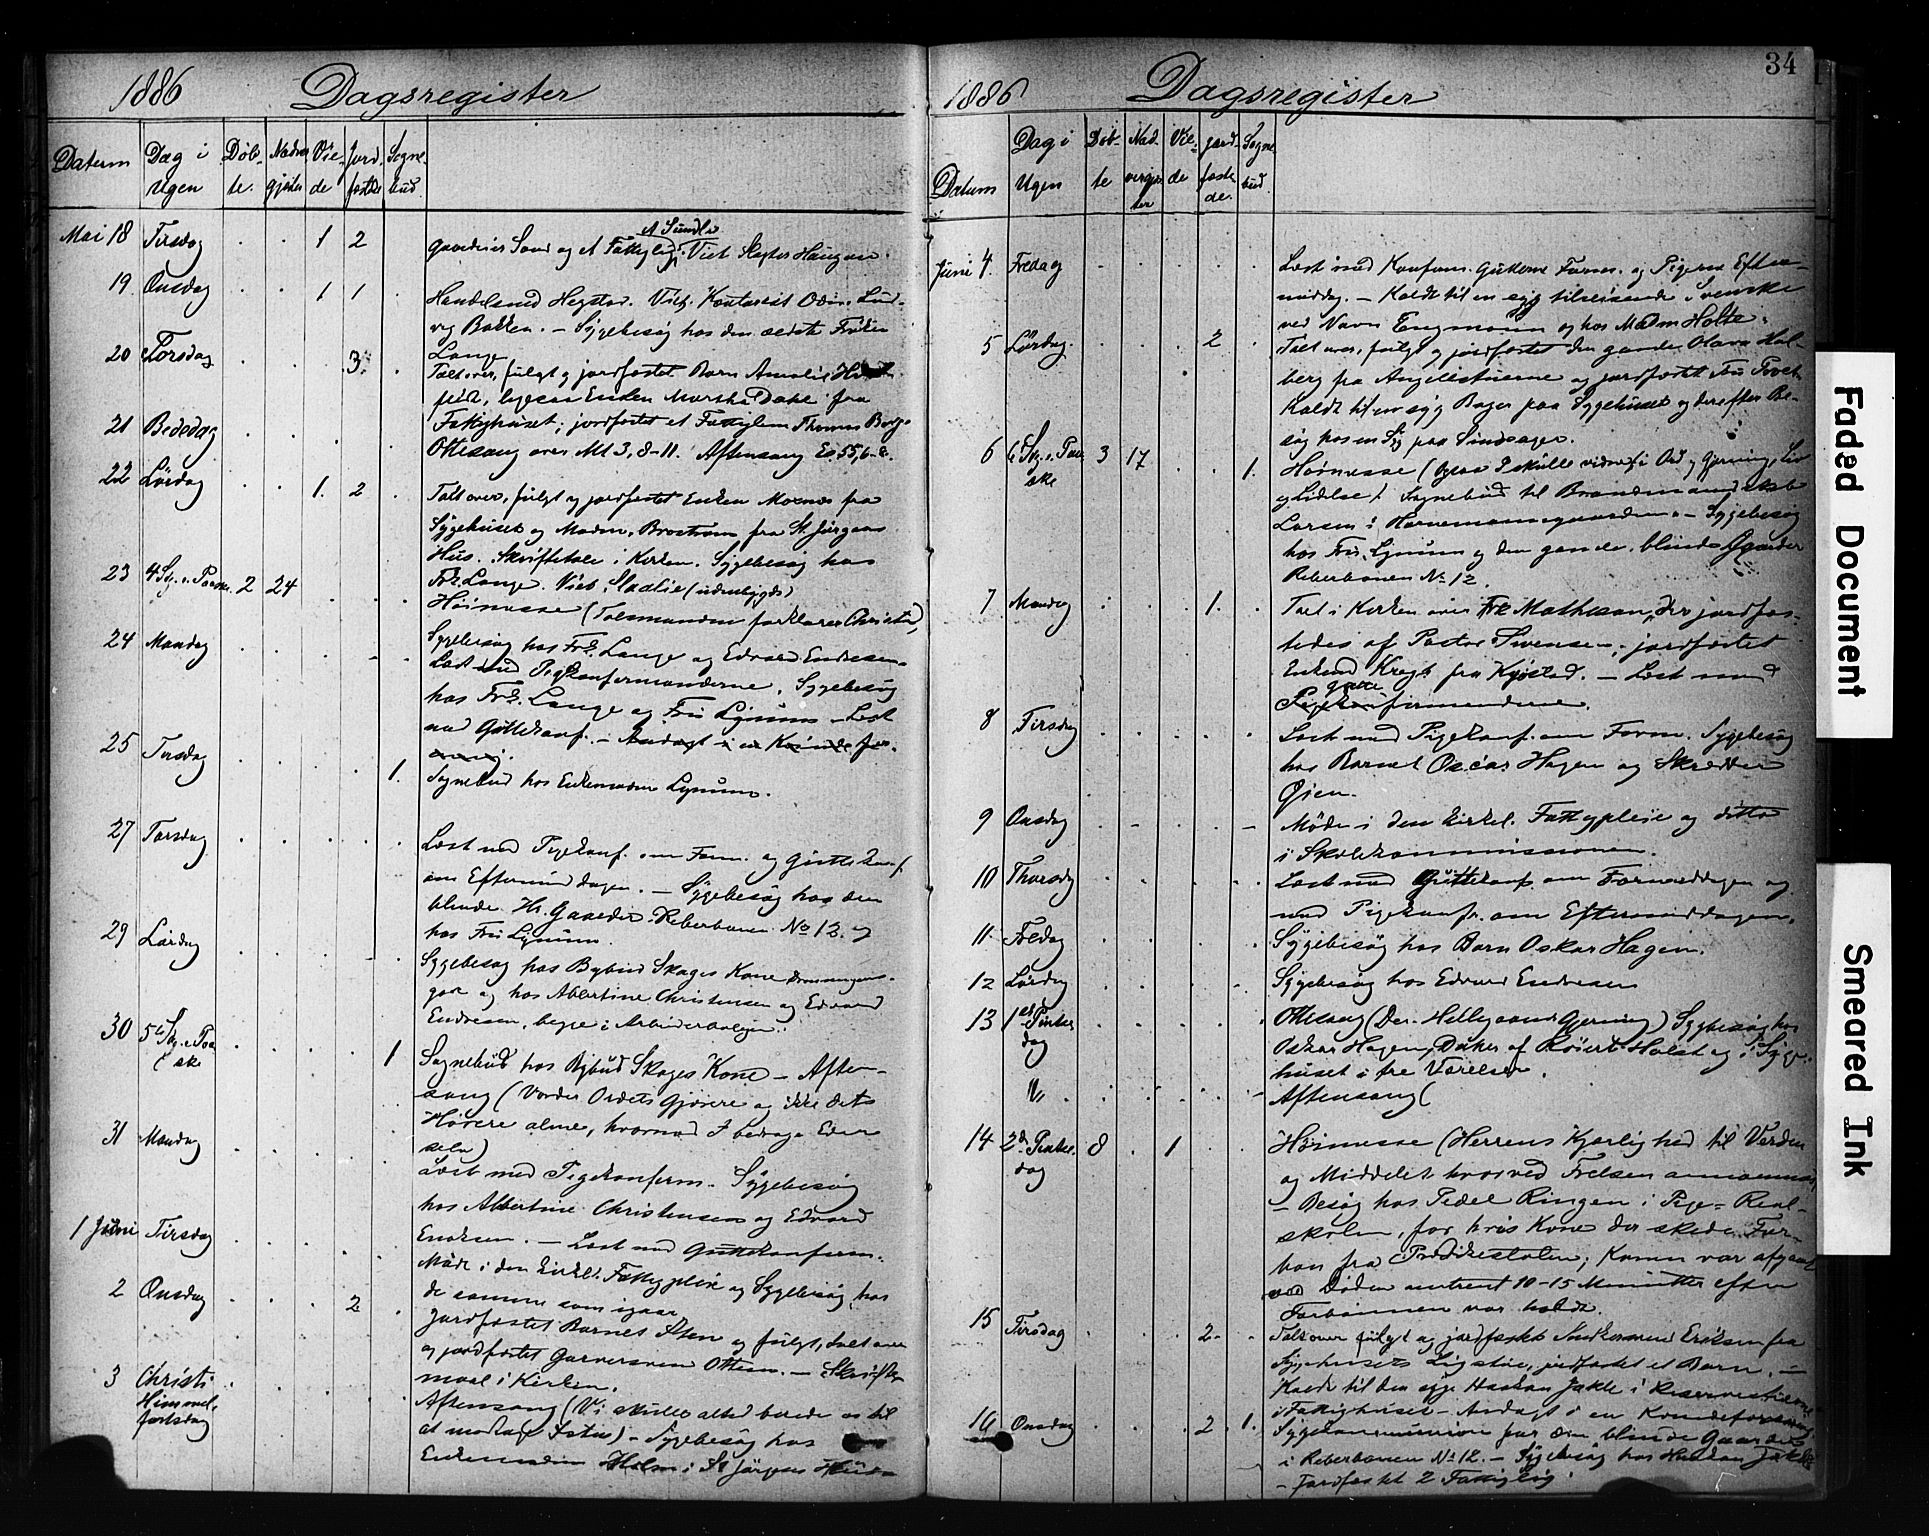 1886 Dagsregister
Datum Dag i Ugen Döbte. Nadvergjester Viede Jordfæstede Sognebud
Mai 18 Tirsdag . . 1 2
A Sundli
og et Fattiglig; Viet Haugan.
19. Onsdag . . 1 1
Viet, Kontorist Odin Lud-
vig Bakken. – Sygebesøg hos den ældste Frøken
Lange
20 Torsdag . . . 3.
Talt over, fulgt og jordfæstet Barn Amalie
Enken Martha Dahl fra
Fattighuset; jordfæstet et Fattiglem Thomas
21 Bededag
Ottesang over Mt 3, 8-11. Aftensang Es 55, 6-
22 Lørdag . . 1. 2
Talt over, fulgt og jordfæstet Enken Moxnes fra
Sygehuset og Madm. Brostrøm fra St Jørgens
Hus. Skriftetale i Kirken. Sygebesøg hos
Frk. Lange. Viet, (udenbygds)
23 4 S. e. Paaske. 2 24
Høimesse (Talsmanden forklarer Christus)
Sygebesøg hos Frk. Lange og Edvard Endresen.
24 Mandag
Læst med Pigekonfirmanderne. Sygebesøg
hos Frk. Lange og Fru Lysum – Læst
med Guttekonf. – Andagt i en Kvindefor-
ening.
25 Tirsdag 1.
Sognebud hos Enkemadm Lysum.
27 Torsdag
Læst med Pigekonf. om Form. og Guttekonf.
om Eftermiddagen. – Sygebesøg hos den
blinde Hr. Gaarder Reberbanen No 12. og
hos Fru Lysum.
29 Lørdag
Sygebesøg hos Bybud Skages Kone Dronningens-
gae og hos Albertine Christensen og Edvard
Endresen, begge i Arbiderboligen.
30 5te S. e. Paa
ske 1
Sognebud hos Bybud Skages Kone – Aften-
sang (Vorder Ordets Gjørere og ikke dets
Hørere alene, hvormed I bedrage Eder
selv)
31 Mandag
Læst med Pigekonfirm. Sygebesøg
hos Albertine Christensen og Edvard
Endresen. – Læst med Guttekonfirm.
1 Juni Tirsdag
Møde i den kirkel. Fattigpleie og Sygebesøg hos
de samme som igaar
2 Onsdag 2
Jordfæstet Barnet Sten og fulgt, talt over
og jordfæstet Garversvend Ottem. – Skrifte-
maal i Kirken.
3 Christi
Himmel-
fartsdag
Aftensang (Vi skulle altid berede os til
at modtage Jesus) – Sygebesøg hos
Enkemadm Holm i St Jørgens Huus
34
1886 Dagsregister
Datum Dag i Ugen Döbte Nadvergjester Viede Jordfæstede. Sognebud.
Juni 4. Fredag
Læst med Konfirm. Gutterne Form. og Pigerne Efter-
middag. – Kaldt til en syg tilreisende Svenske
ved Navn Engmann og hos Madm Holte.
5 Lørdag. 2
Talt over, fulgt og jordfæstet den gamle Olava Hol-
berg fra Angellstuerne og jordfæstet Fru
Kaldt til en syg Bager paa Sygehuset og derefter Be-
søg hos en Syg paa Sindsager.
6 6te S. e. Paa
ske 3 17 1.
Høimesse (Ogsaa I skulle vidne i Ord og Gjerning, Liv
og Lidelse). Sognebud til Brandmand
Larsen i Hornemannsgaarden. – Sygebesøg
hos Fru Lysum og den gamle, blinde Gaarder
Reberbanen No 12.
7 Mandag 1.
Talt i Kirken over Frk Mathesen, der jordfæs-
tedes af Pastor Svensen –; jordfæstet
Enkemd Krogh fra Kjøsted. – Læst med
Pigekonfirmanderne.
8 Tirsdag
Læst med Pigekonf. om Form. Sygebesøg
hos Barnet Oscar Hagen og Skrædder
Øien.
9 Onsdag
Møde i den kirkel. Fattigpleie og ditto
i Skolekommissionen.
10 Thorsdag
Læst med Guttekonf. om Formiddagen og
med Pigekonfr. om Eftermiddagen.
11. Fredag
Sygebesøg hos Barn Oskar Hagen.
12 Lørdag
Sygebesøg hos Edvard Endresen
13 1ste Pintse
dag
Ottesang (Den Helligaands Gjerning) Sygebesøg hos
Oskar Hagen, Enken af Holst og i Syge-
huset i tre Værelser.
"
Aftensang (
14 2d Pintse-
dag 8 . 1
Høimesse (Herrens Kjærlighed til Verden
og Middelet hvorved Frelsen annammes)
– Besøg hos Pedel Ringen i Pige-Real-
skolen, for hvis Kone der skede For-
bøn fra Prædikestolen; Konen var afgaaet
ved Døden omtrent 10-15 Minutter efter
Forbønnen var holdt.
15 Tirsdag 2.
Talt over fulgt og jordfæstet Snedkersvend Eriksen fra
Sygehusets Ligstue, jordfæstet et Barn. –
Kaldt til den syge Haakon Jakle i
i Fattighuset – Andagt i en Kvindeforening
16 Onsdag 2 1.
Sygekommunion for den blinde Gaarder
i Reberbanen No 12. – Sygebesøg hos Haakon Jakle
– Jordfæstet 2 Fattiglig.
Faded Document
Smeared Ink